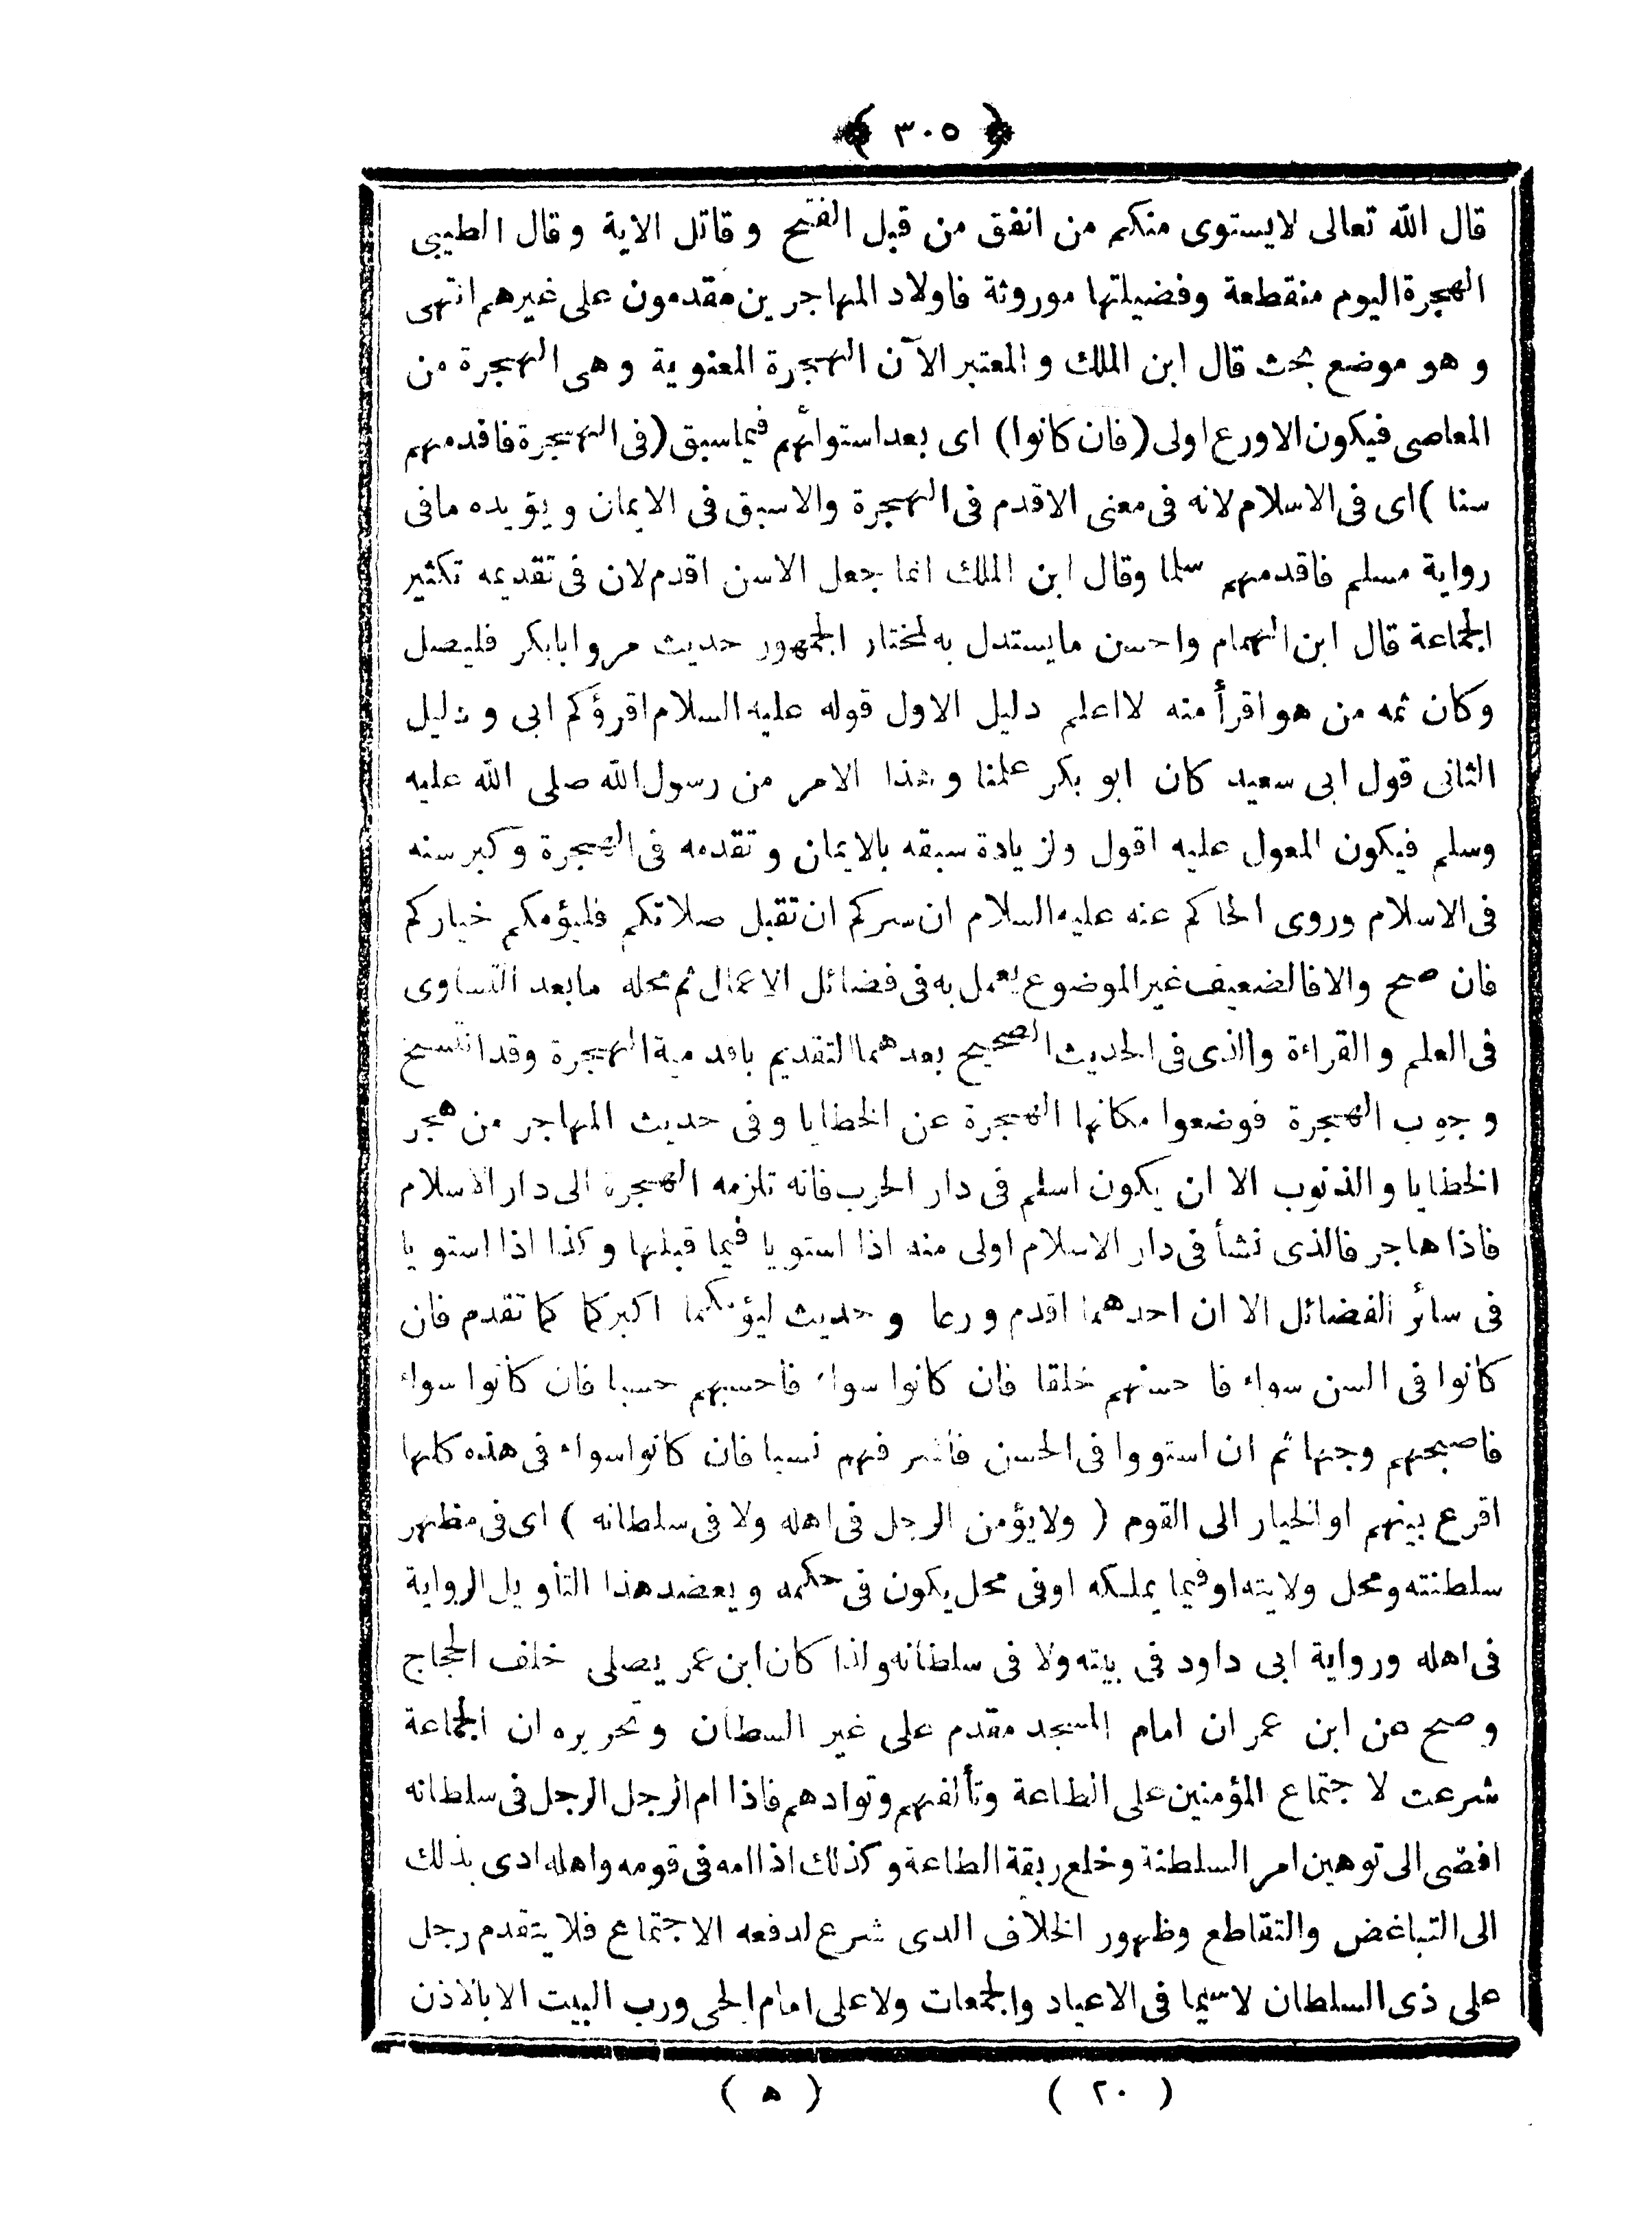 ﴿ ٣٠٥ ﴾
قال الله تعالى لايستوى منكم من انفق من قبل الفتح وقاتل الاية وقال الطيبى
الهجرة اليوم منقطعة وفضيلتها موروثة فاولاد المهاجرين مقدمون على غيرهم انتهى
وهو موضع بحث قال ابن الملك والمعتبر الآن الهجرة المعنوية وهى الهجرة من
المعاصى فيكون الاورع اولى (فان كانوا) اى بعد استوائهم فيما سبق (فى الهجرة فاقدمهم
سنا) اى فى الاسلام لانه فى معنى الاقدم فى الهجرة والاسبق فى الايمان ويؤيده مافى
رواية مسلم فاقدمهم سلما وقال ابن الملك انما جعل الاسن اقدم لان فى تقديمه تكثير
الجماعة قال ابن الهمام واحسن مايستدل به لمختار الجمهور حديث مروا ابابكر فليصل
وكان ثمه من هو اقرأ منه لا اعلم دليل الاول قوله عليه السلام اقرؤكم ابى ودليل
الثانى قول ابى سعيد كان ابو بكر علمنا وهذا الامر من رسول الله صلى الله عليه
وسلم فيكون المعول عليه اقول ولزيادة سبقه بالايمان وتقدمه فى الهجرة وكبر سنه
فى الاسلام وروى الحاكم عنه عليه السلام ان سركم ان تقبل صلاتكم فليؤمكم خياركم
فان صح والا فالضعيف غير الموضوع يعمل به فى فضائل الاعمال ثم محله مابعد التساوى
فى العلم والقراءة والذى فى الحديث الصحيح بعدهما التقديم باقدمية الهجرة وقد انتسخ
وجوب الهجرة فوضعوا مكانها الهجرة عن الخطايا وفى حديث المهاجر من هجر
الخطايا والذنوب الا ان يكون اسلم فى دار الحرب فانه تلزمه الهجرة الى دار الاسلام
فاذا هاجر فالذى نشأ فى دار الاسلام اولى منه اذا استويا فيما قبلها وكذا اذا استويا
فى سائر الفضائل الا ان احدهما اقدم ورعا وحديث ليؤمكما اكبركما كما تقدم فان
كانوا فى السن سواء فاحسنهم خلقا فان كانوا سواء فاحسبهم حسبا فان كانوا سواء
فاصبحهم وجها ثم ان استووا فى الحسن فاشرفهم نسبا فان كانوا سواء فى هذه كلها
اقرع بينهم او الخيار الى القوم ( ولا يؤمن الرجل فى اهله ولا فى سلطانه ) اى فى مظهر
سلطنته ومحل ولايته او فيما يملكه او فى محل يكون فى حكمه ويعضد هذا التأويل الرواية
فى اهله ورواية ابى داود فى بيته ولا فى سلطانه ولذا كان ابن عمر يصلى خلف الحجاج
وصح عن ابن عمر ان امام المسجد مقدم على غير السطان وتحريره ان الجماعة
شرعت لاجتماع المؤمنين على الطاعة وتألفهم وتوادهم فاذا ام الرجل الرجل فى سلطانه
افضى الى توهين امر السلطنة وخلع ربقة الطاعة وكذلك اذا امه فى قومه واهله ادى بذلك
الى التباغض والتقاطع وظهور الخلاف الدى شرع لدفعه الاجتماع فلا يتقدم رجل
على ذى السلطان لاسيما فى الاعياد والجمعات ولا على امام الحى ورب البيت الا بالاذن
( ٢٠ ) ( ٥ )